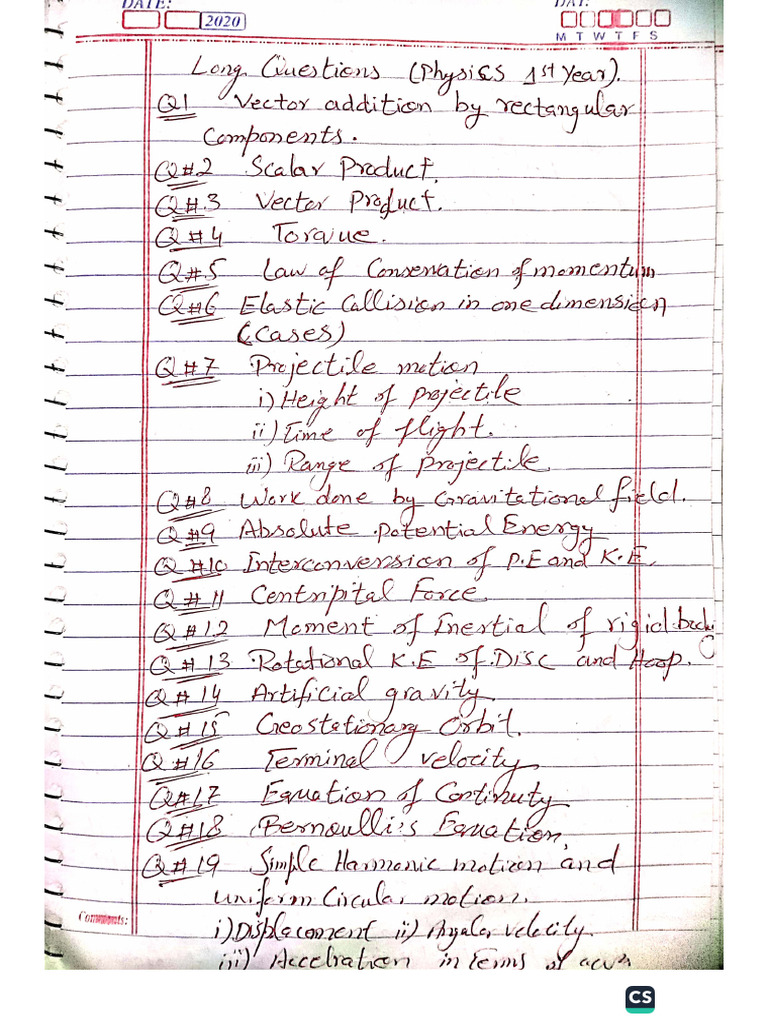 DATE:
DAY:
2020
M T W T F S
Long Questions (Physics 1st Year).
Q1 Vector addition by rectangular
Components.
Q#2 Scalar Product.
Q#3 Vector Product.
Q#4 Torque.
Q#5 Law of Conservation of momentum
Q#6 Elastic Callision in one dimension
(Cases)
Q#7 Projectile motion
i) Height of projectile
ii) Time of flight.
iii) Range of projectile
Q#8 Work done by Gravitational field.
Q#9 Absolute Potential Energy
Q#10 Interconversion of P.E and K.E.
Q#11 Centripital Force.
Q#12 Moment of Inertial of rigid
Q#13 Rotational K.E of Disc and Hoop.
Q#14 Artificial gravity.
Q#15 Geostationary Orbit.
Q#16 Terminal velocity.
Q#17 Equation of Continuty
Q#18 Bernoulli's Equation,
Q#19 Simple Harmonic motion and
uniform Circular motion.
Comments:
i) Displacement ii) Angular velocity.
iii) Accelration in terms of
CS